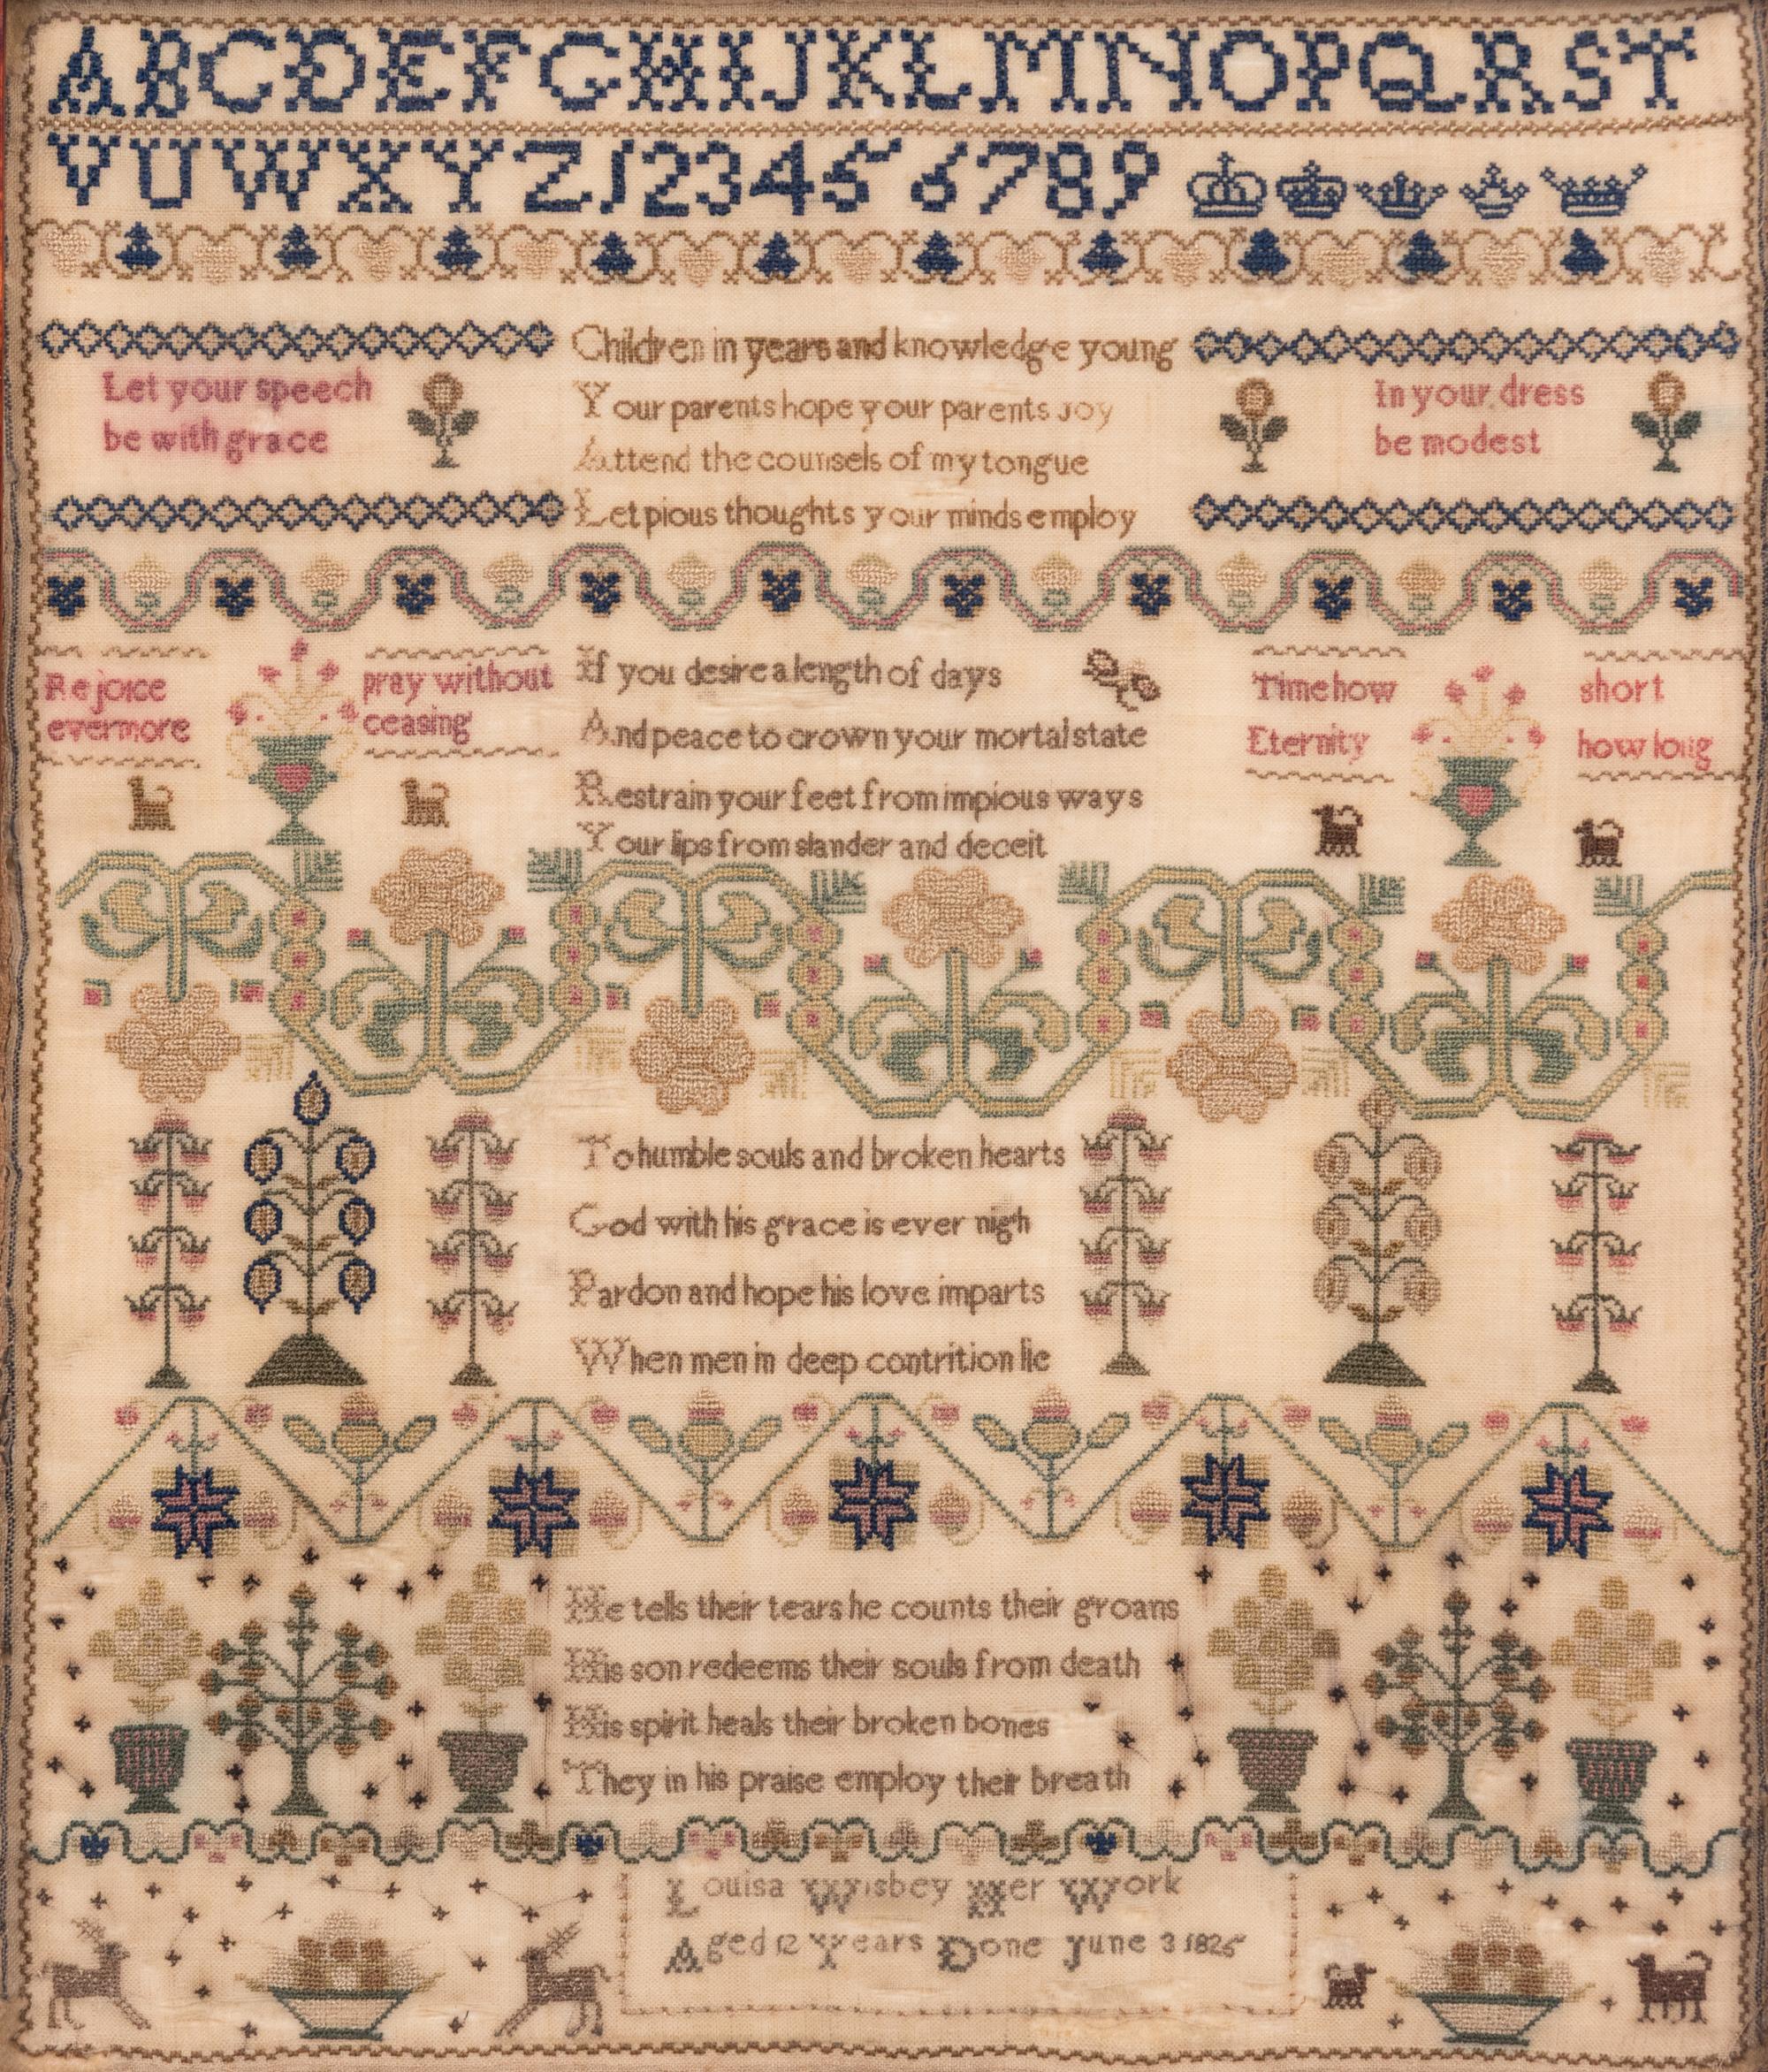 ABCDEFGHIJKLMNOPQRST
VUWXYZ123456789
Children in years and knowledge young
Let your speech
be with grace
Your parents hope your parents Joy
Attend the counsels of my tongue
Let pious thoughts your minds employ
In your dress
be modest
Rejoice
evermore
pray without
ceasing
If you desire a length of days
And peace to crown your mortal state
Restrain your feet from impious ways
Your lips from slander and deceit
Time how short
Eternity how long
To humble souls and broken hearts
God with his grace is ever nigh
Pardon and hope his love imparts
When men in deep contrition lie
He tells their tears he counts their groans
His son redeems their souls from death
His spirit heals their broken bones
They in his praise employ their breath
Louisa Wisbey Her Work
Aged 12 Years Done June 3 1825